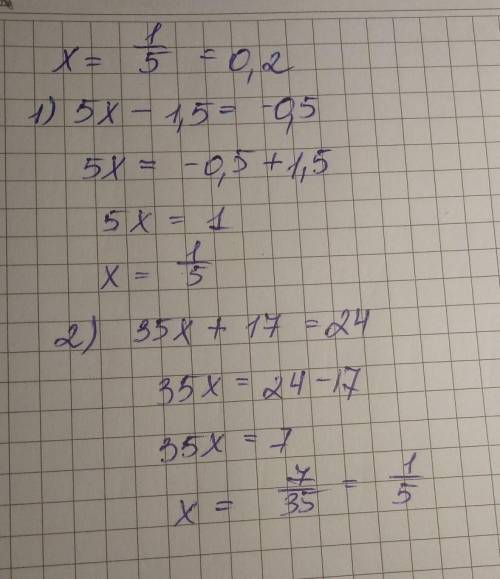 x = 1/5 = 0,2
1) 5x - 1,5 = -0,5
5x = -0,5 + 1,5
5x = 1
x = 1/5
2) 35x + 17 = 24
35x = 24 - 17
35x = 7
x = 7/35 = 1/5